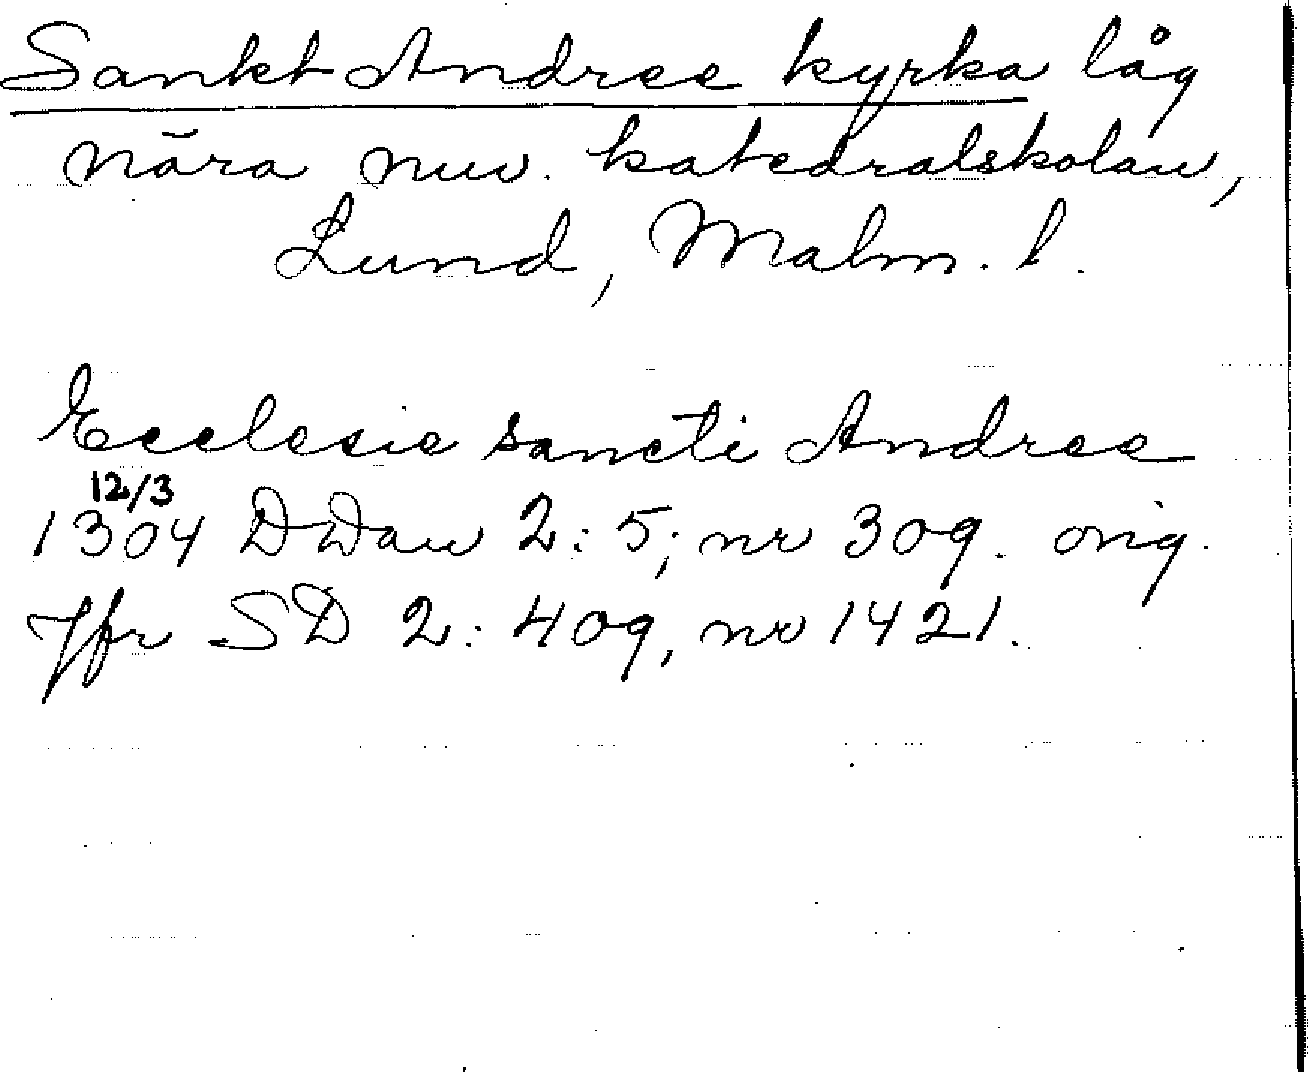 Sankt Andree kyrka låg
nära nuv. katedralskolan,
Lund, Malm. l.
Ecclesie sancti Andree
12/3
1304 DDan 2:5; nr 309. orig.
Jfr SD 2: 409, nr 1421.